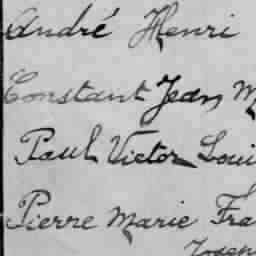 André Henri
Constant Jean M
Paul Victor Loui
Pierre Marie Fra
Josep